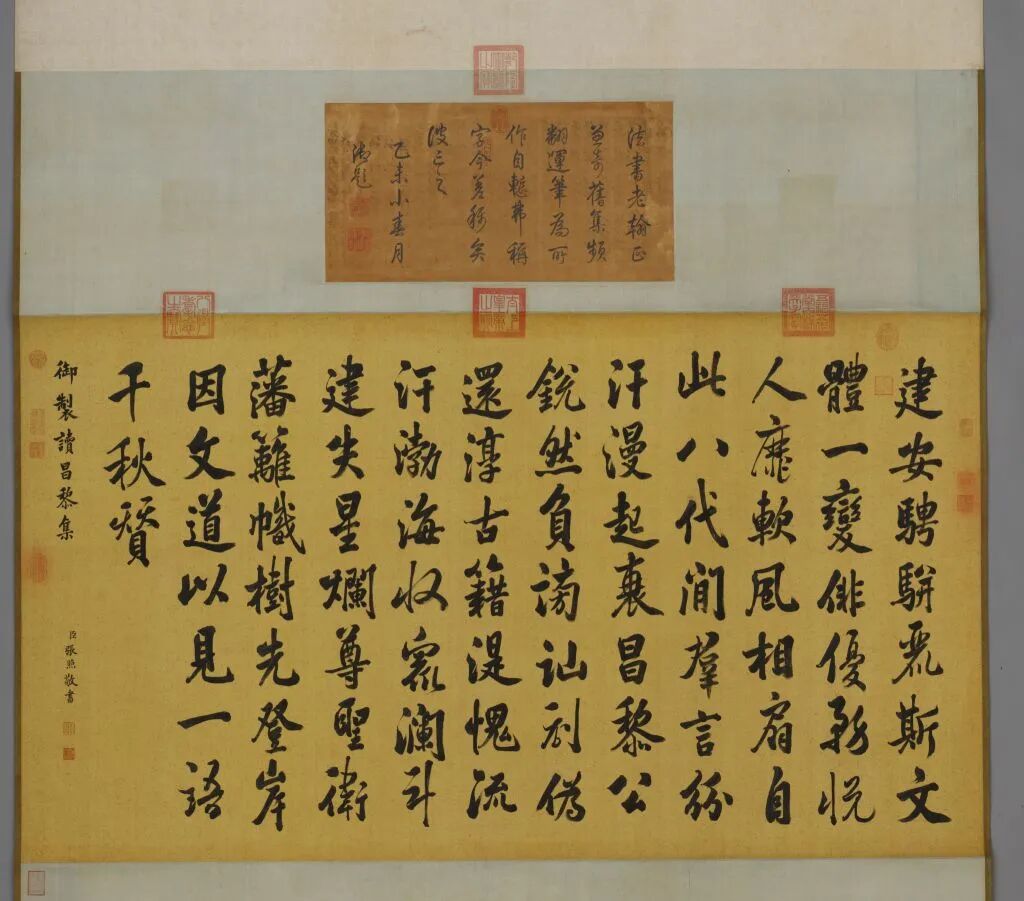 法書老翰臣
舊集頻
翻運筆為所
作自慙弗稱
字今差稱矣
彼之
乙未小春月
御題
建安騁駢麗斯文
體一變俳優務悅
人靡軟風相扇自
此八代間群言紛
汗漫起衰昌黎公
銳然負謗訕剗偽
還淳古籍湜愧流
汗渤海收眾瀾斗
建失星爛尊聖衛
藩籬幟樹先登岸
因文道以見一語
千秋贊
御製讀昌黎集
臣張照敬書